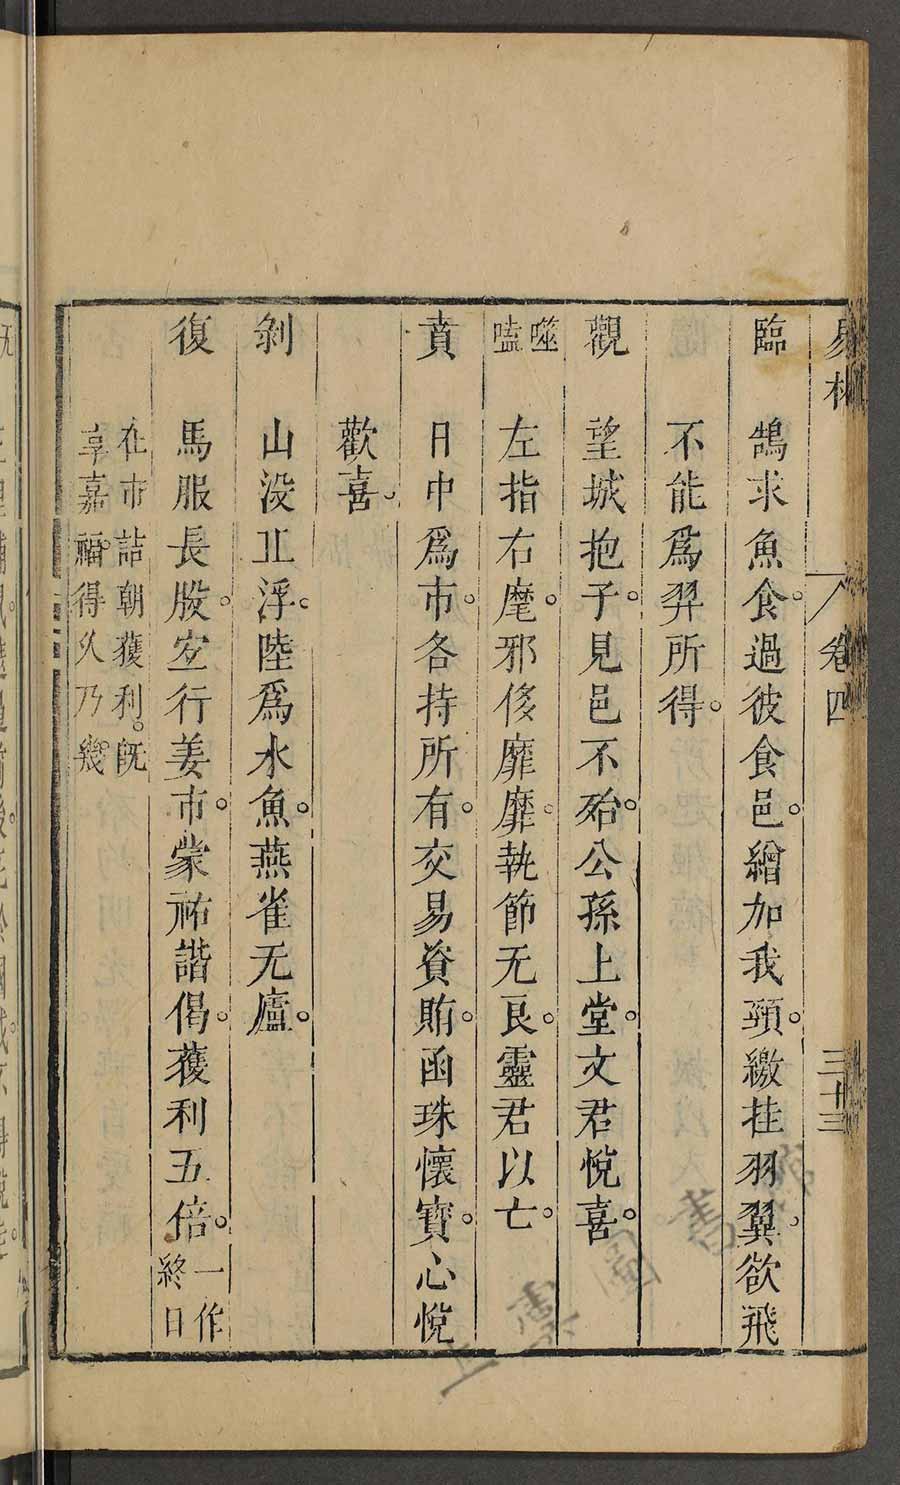 易林 卷四 三十三
臨 鵠求魚食。過彼食邑。繒加我頸。繳挂羽翼。欲飛
不能為羿所得。
觀 望城抱子。見邑不殆。公孫上堂。文君悅喜。
噬嗑 左指右麾。邪侈靡靡。執節无良。靈君以亡。
賁 日中為市。各持所有。交易資賄。函珠懷寶。心悅
歡喜。
剝 山沒丘浮。陸為水魚。燕雀无廬。
復 馬服長股。宜行善市。蒙祐諧偶。獲利五倍。一作終日
在市詰朝獲利。既享嘉福。得久乃幾。